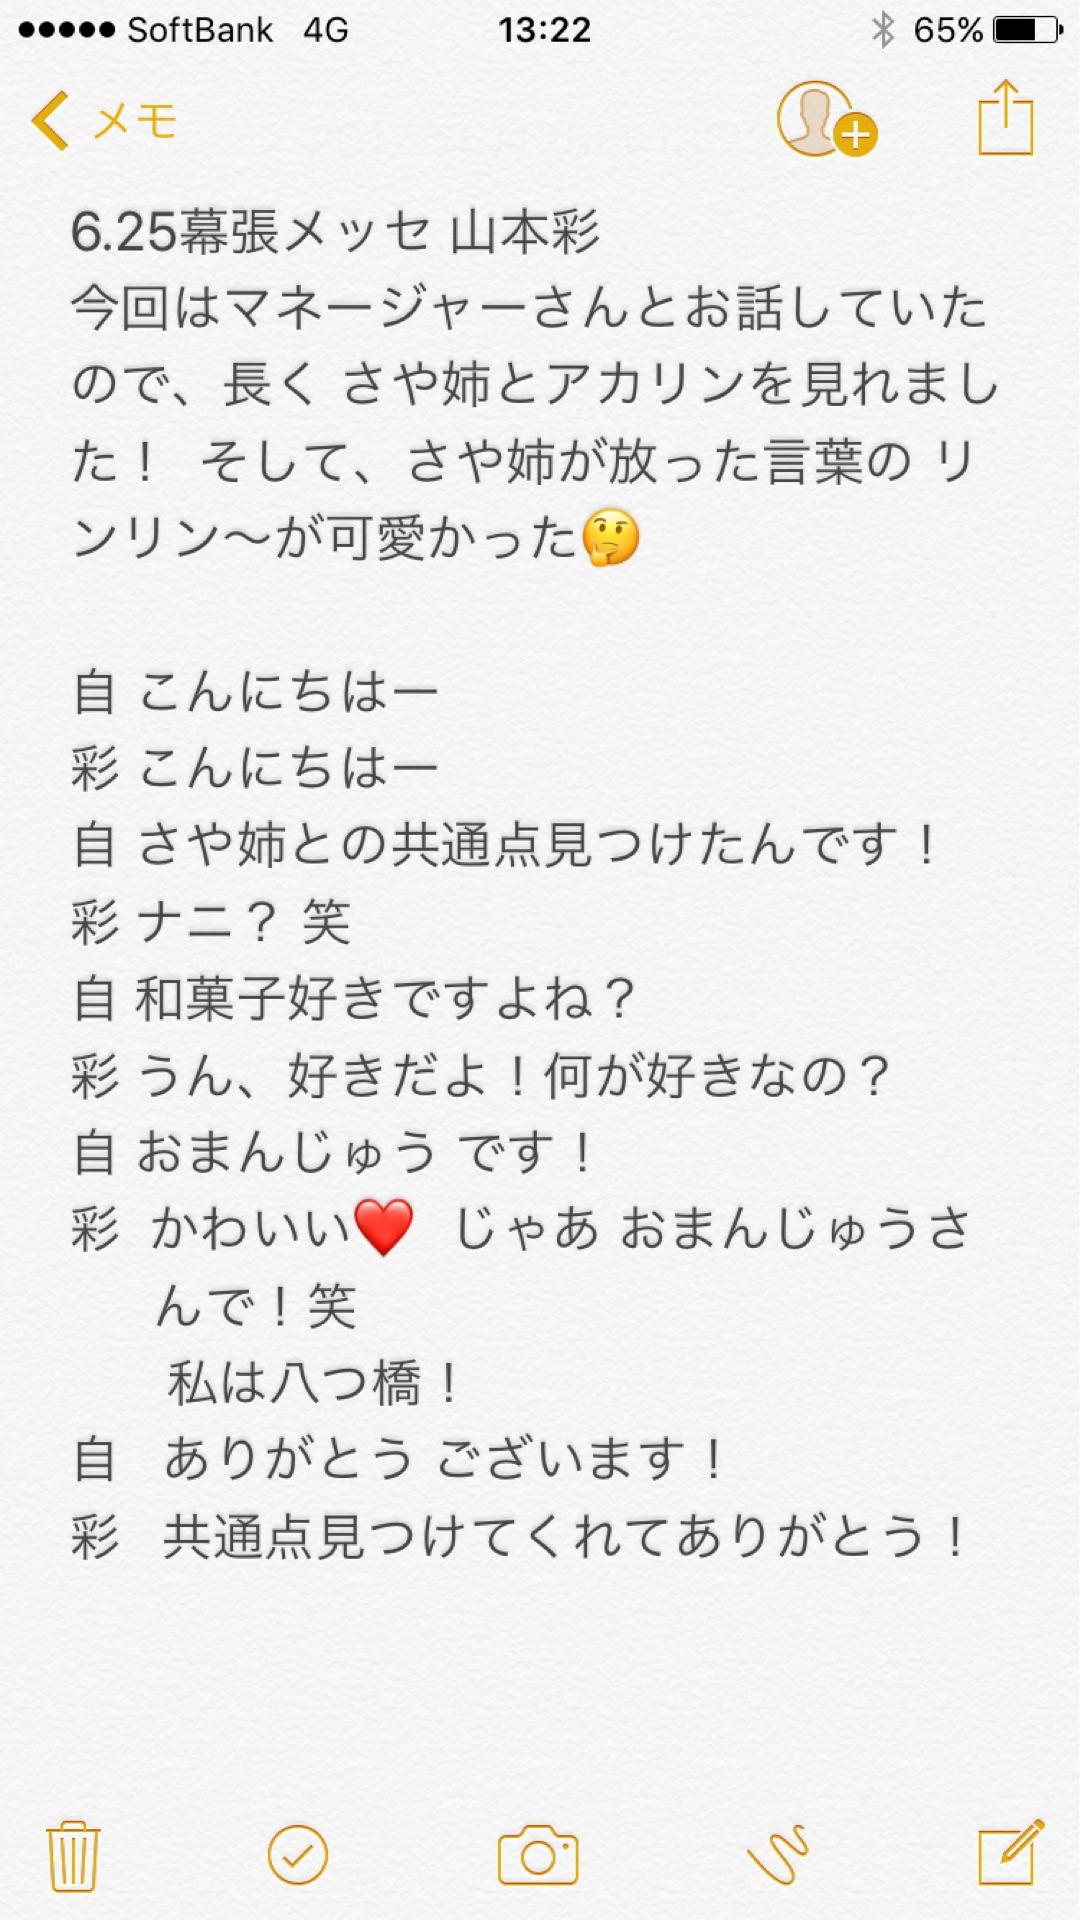 ●●●●● SoftBank 4G 13:22 65%
メモ
6.25幕張メッセ 山本彩
今回はマネージャーさんとお話していた
ので、長く さや姉とアカリンを見れまし
た！ そして、さや姉が放った言葉の リ
ンリン〜が可愛かった🤔
自 こんにちはー
彩 こんにちはー
自 さや姉との共通点見つけたんです！
彩 ナニ？ 笑
自 和菓子好きですよね？
彩 うん、好きだよ！何が好きなの？
自 おまんじゅう です！
彩 かわいい❤️ じゃあ おまんじゅうさ
んで！笑
私は八つ橋！
自 ありがとう ございます！
彩 共通点見つけてくれてありがとう！